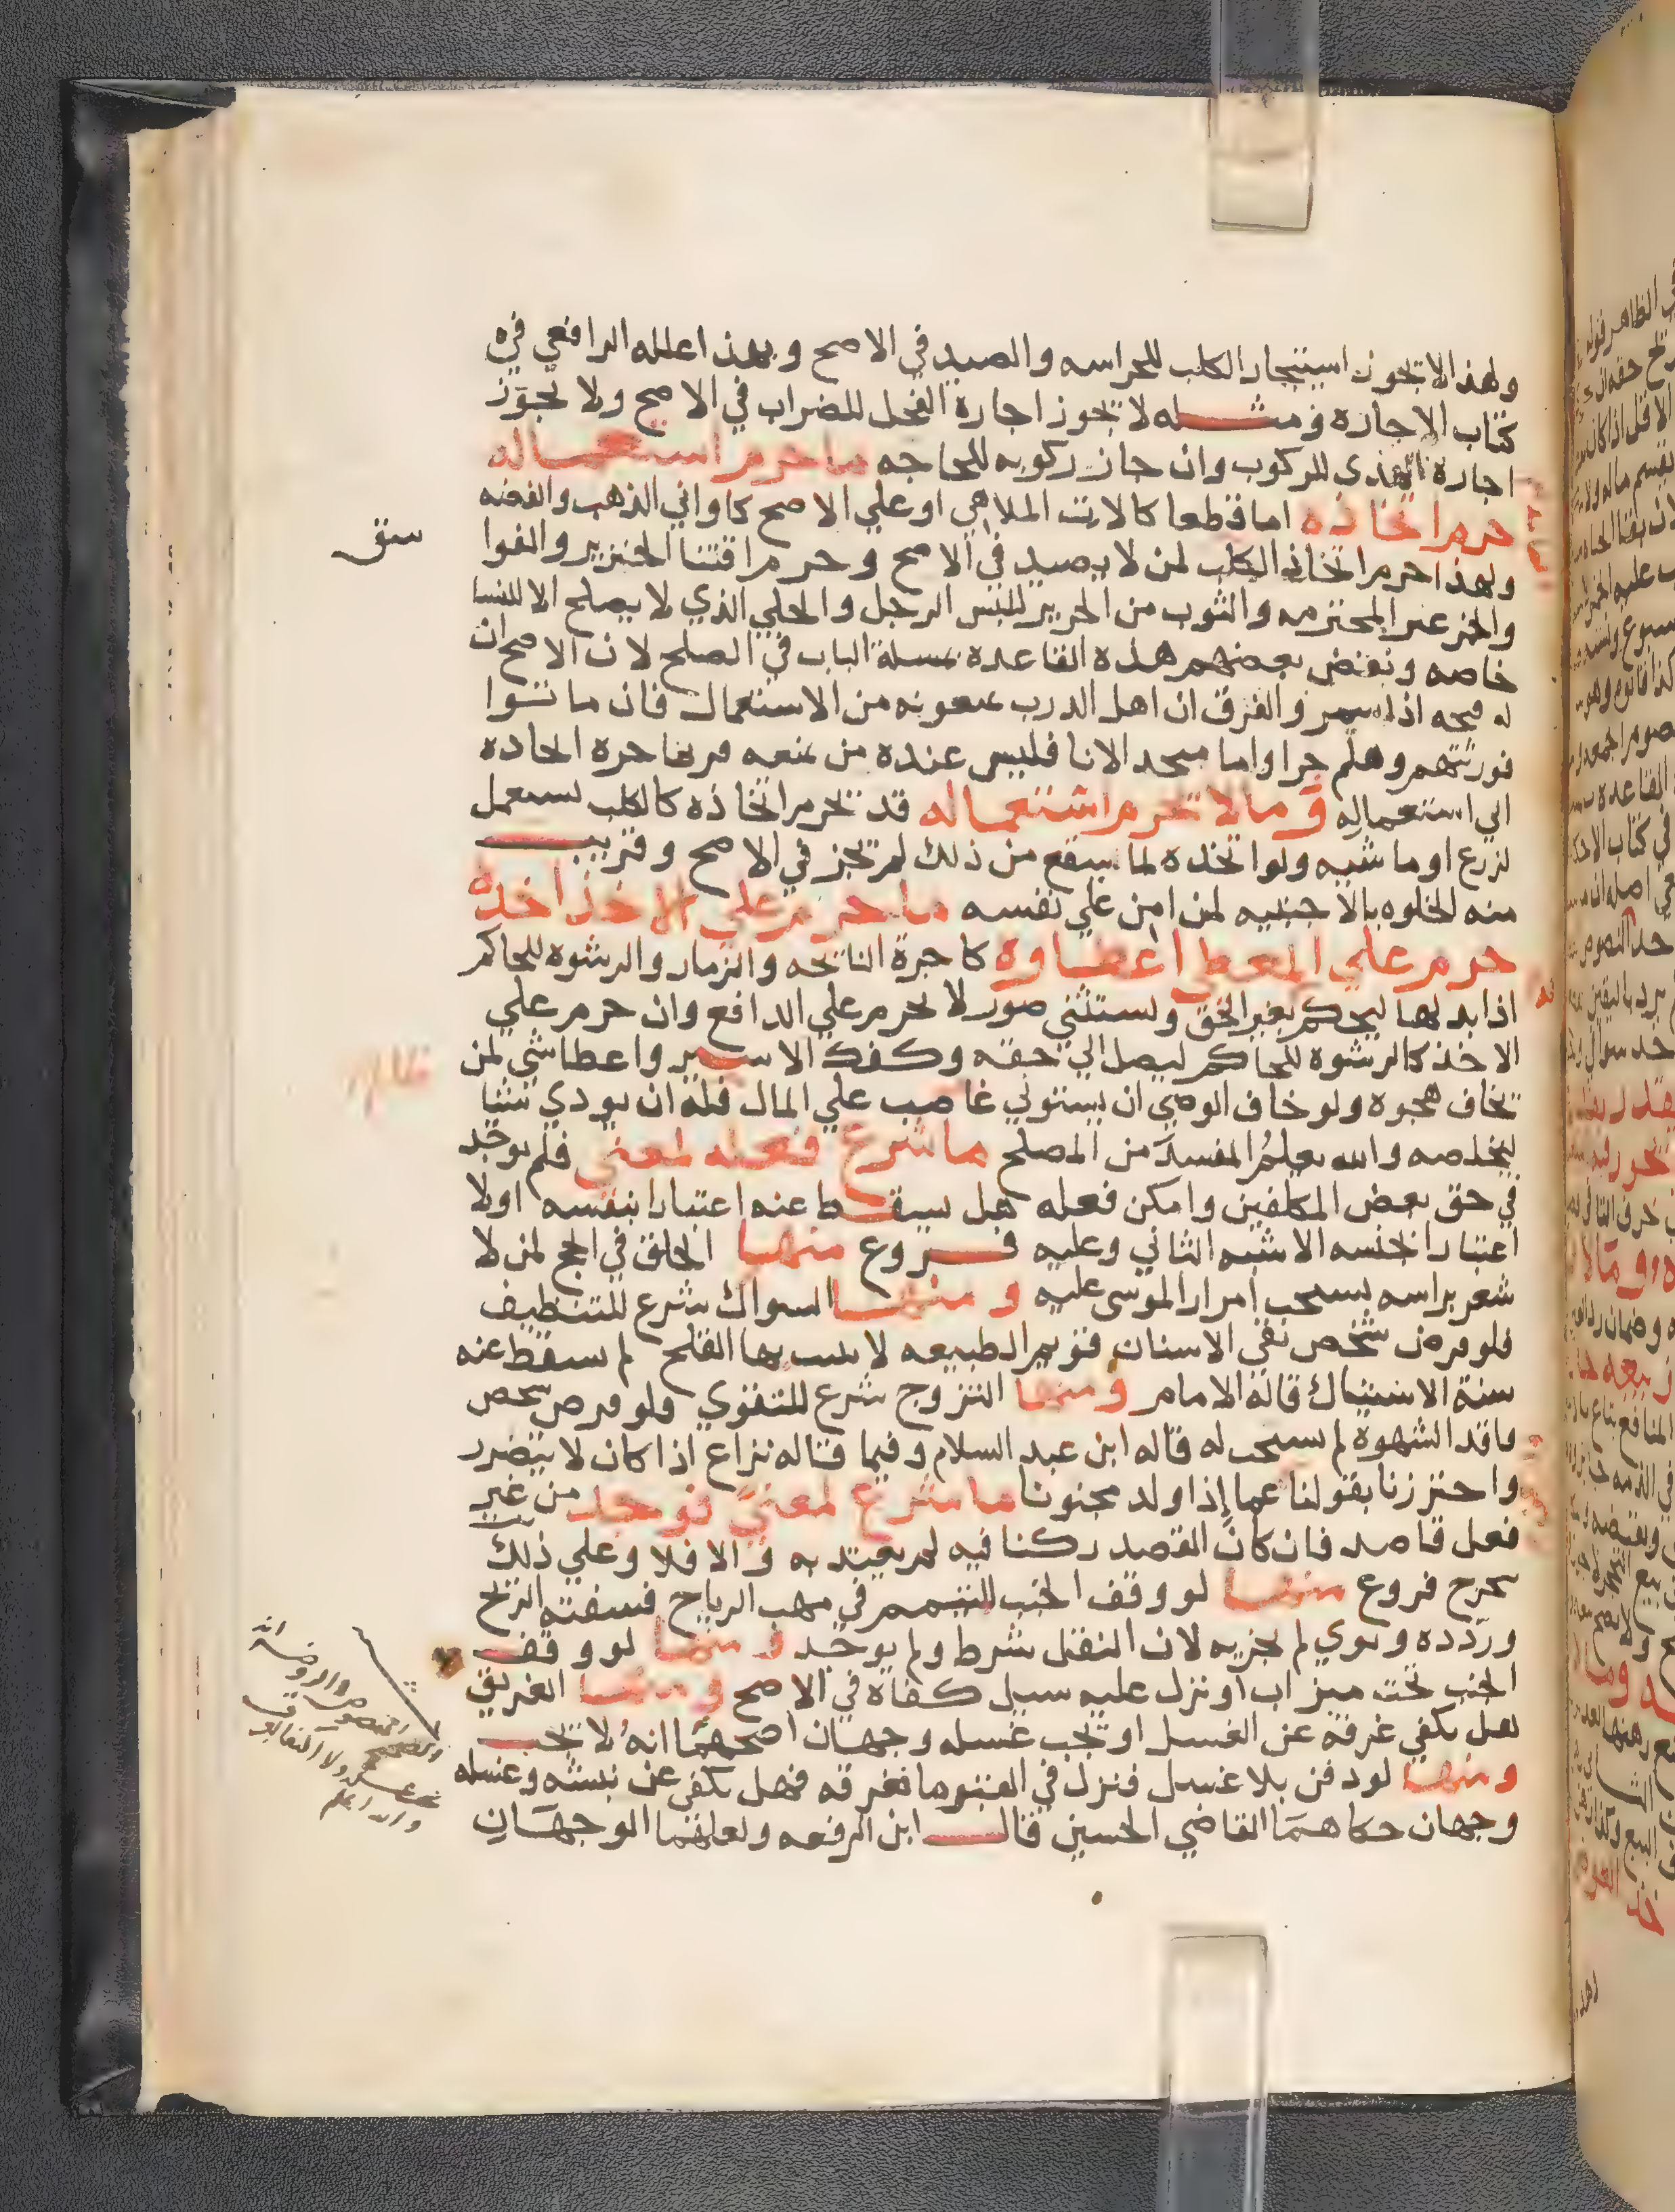 ولهذا لا تجوز استيجار الكلب للحراسه والصيد في الاصح وبهذا علله الرافعي في
كتاب الاجاره ومثله لا تجوز اجارة الفحل للضراب في الاصح ولا تجوز
اجارة الهدى للركوب وان جاز ركوبه للحاجه ما حرم استعماله
حرم اتخاذه اما قطعا كالات الملاهي او علي الاصح كاواني الذهب والفضه
ولهذا حرم اتخاذ الكلب لمن لا يصيد في الاصح وحرم اقتنا الخنزير والفوا
والخمر غير المحترمه والثوب من الحرير للبس الرجل والحلي الذي لا يصلح الا للنسا
خاصه ونقض بعضهم هذه القاعدة بمسلة الباب في الصلح لان الاصح ان
له فتحه اذا سمر والفرق ان اهل الدرب يمنعونه من الاستعمال فان ماتوا
فورثتهم وهلم جرا واما متخذ الانا فليس عنده من يمنعه فربما جره اتخاذه
الي استعماله وما لا تحرم استعماله قد تحرم اتخاذه كالكلب يستعمل
لزرع او ماشيه ولو اتخذه لما سيقع من ذلك لم تجز في الاصح وقريب
منه الخلوه بالاجنبيه لمن امن علي نفسه ما حرم علي الاخذ اخذه
حرم علي المعطي اعطاوه كاجرة النايحه والزمار والرشوه للحاكم
اذا بذلها ليحكم بغير الحق ويستثني صور لا تحرم علي الدافع وان حرم علي
الاخذ كالرشوه للحاكم ليصل الي حقه وكفك الاسير واعطا شي لمن
تخاف هجوه ولو خاف الوصي ان يستولي غاصب علي المال فله ان يودي شيئا
ليخلصه والله يعلم المفسد من المصلح ما شرع فعله لمعني فلم يوجد
في حق بعض المكلفين وامكن فعله هل يسقط عنه اعتبارا بنفسه اولا
اعتبارا بجنسه الاشبه الثاني وعليه فروع منها الحلق في الحج لمن لا
شعر براسه يستحب امرار الموسى عليه ومنها السواك شرع للتنظيف
فلو فرض شخص نقي الاسنان قويم الطبيعه لا يسب بها القلح لم يسقط عنه
سنة الاستياك قاله الامام ومنها التزوج شرع للتقوي فلو فرض شخص
فاقد الشهوة لم يستحب له قاله ابن عبد السلام وفيما قاله نزاع اذا كان لا يتضرر
واحترزنا بقولنا عما إذا ولد مجنونا ما شرع لمعني فوجد من غير
فعل قاصد فان كان القصد ركنا فيه لم يعتد به والا فلا وعلي ذلك
تخرج فروع منها لو وقف الجنب للتيمم في مهب الرياح فسفته الريح
وردده ونوي لم يجزيه لان النقل شرط ولم يوجد ومنها لو وقف
الجنب تحت ميزاب او نزل عليه سيل كفاه في الاصح ومنها الغريق
هل يكفي غرقه عن الغسل او تجب غسله وجهان اصحهما انه لا تجب
ومنها لو دفن بلا غسل فنزل في القبر ما فغرقه فهل يكفي عن نبشه وغسله
وجهان حكاهما القاضي الحسين قال ابن الرفعه ولعلهما الوجهان
والصحيح المنصوص والروضة انه
والله اعلم